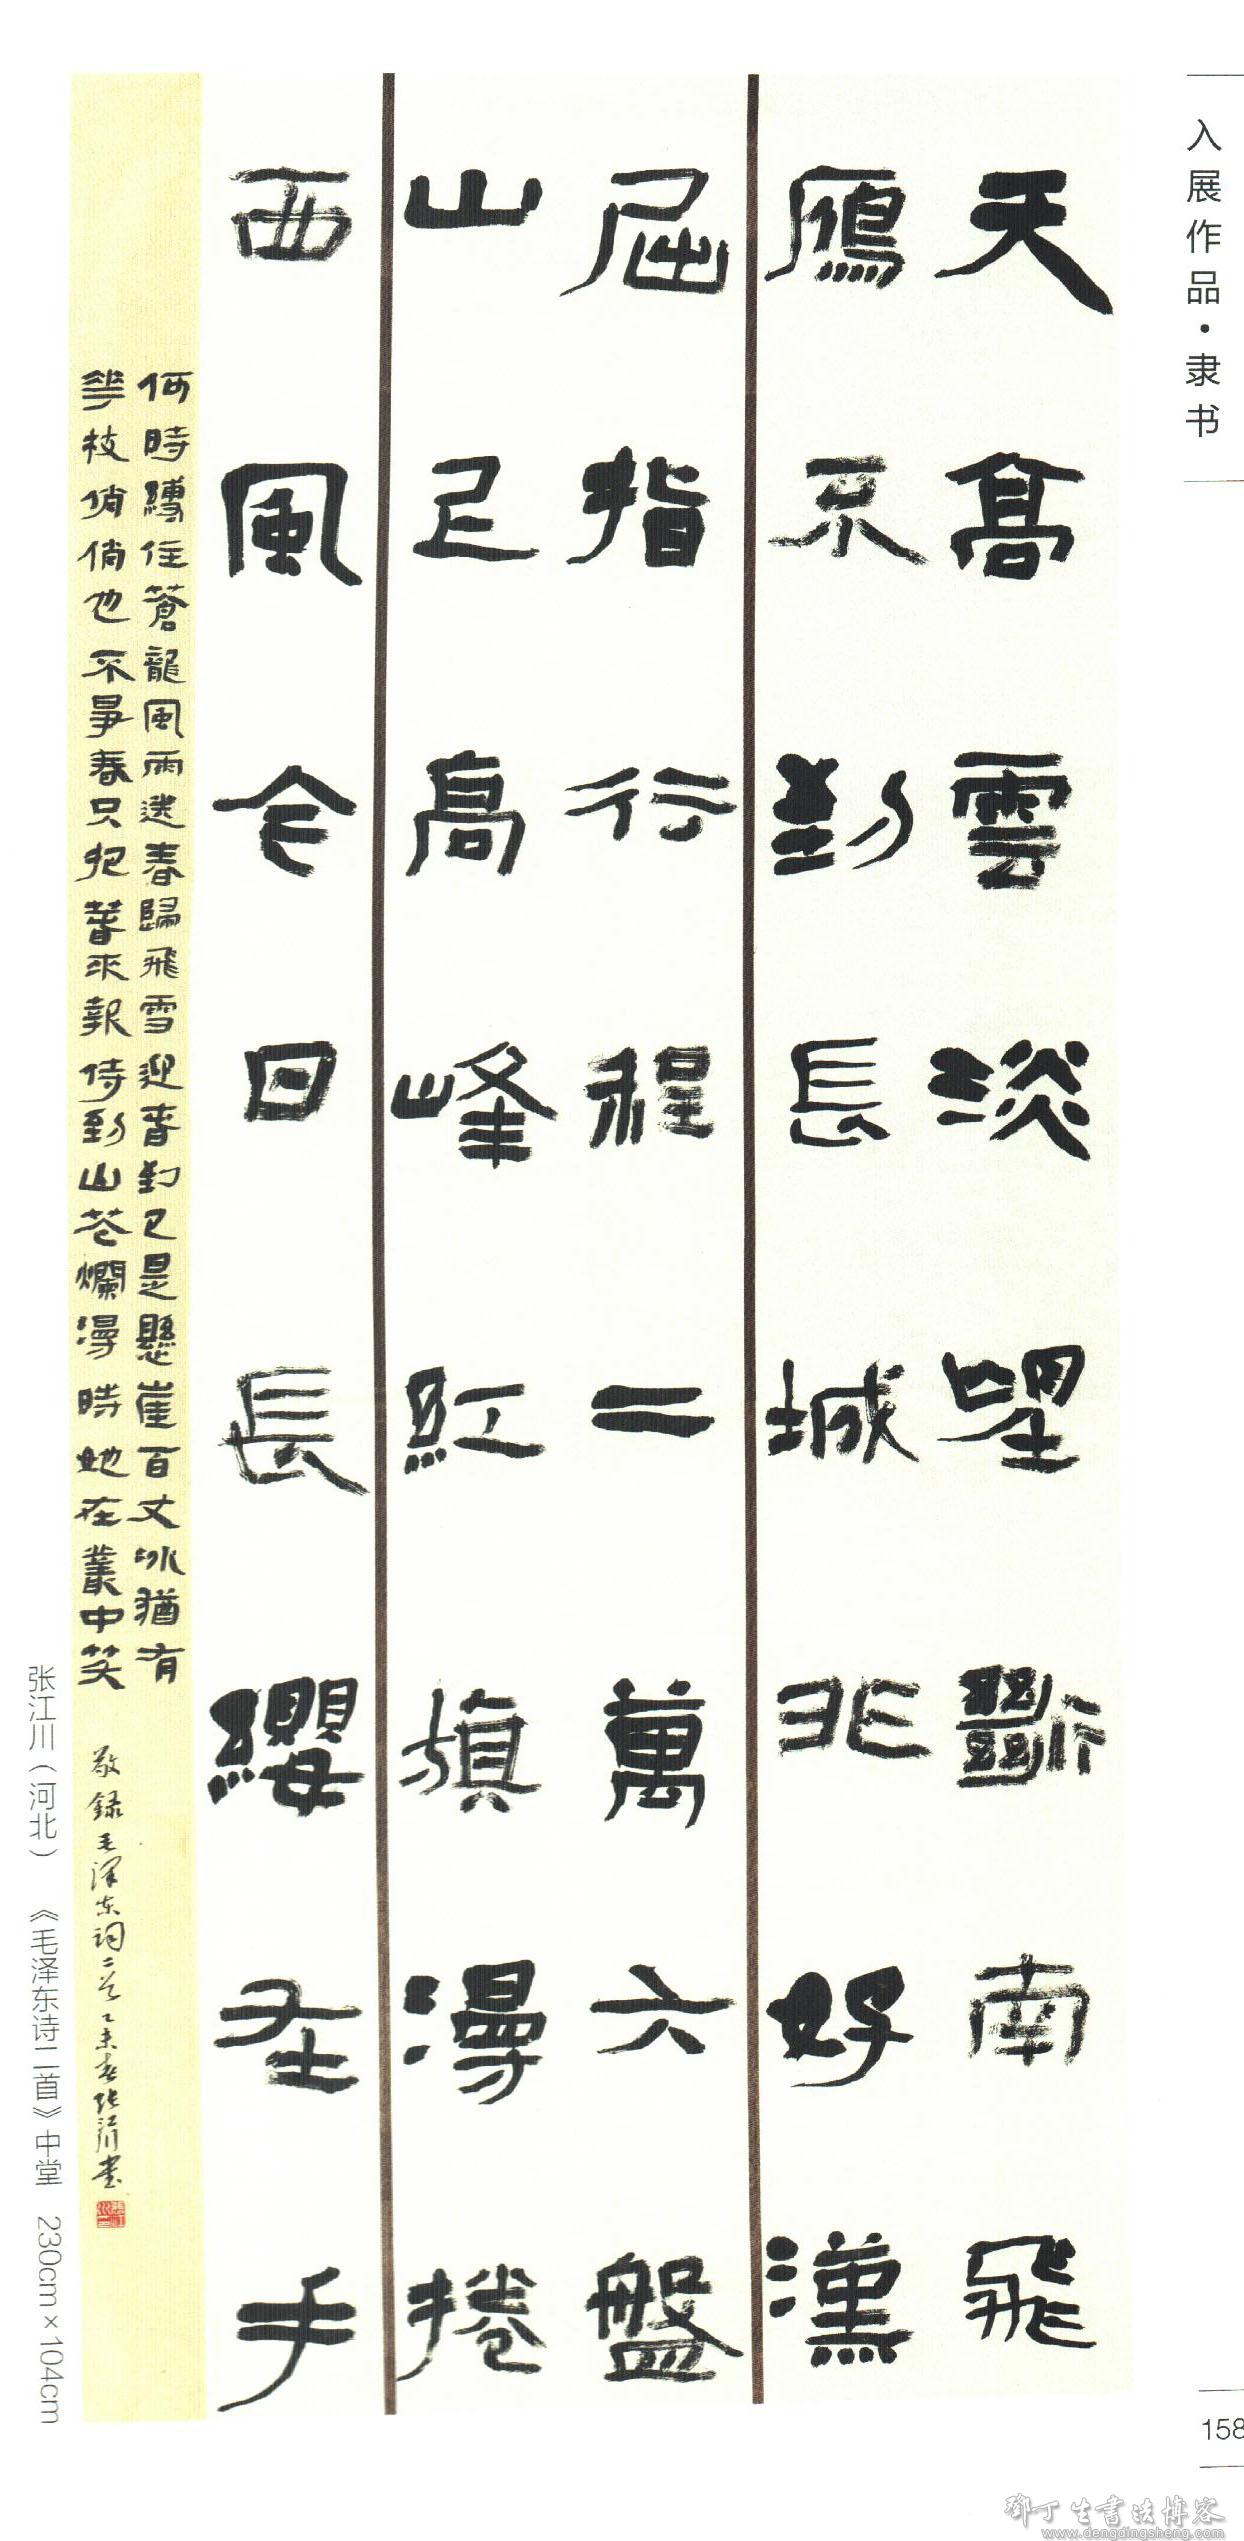 入展作品·隶书
158
天高雲淡望斷南飛
鴈不到長城非好漢
屈指行程二萬六盤
山高峰紅旗漫捲
西風今日長纓在手
何時縛住蒼龍風雨送春歸飛雪迎春到已是懸崖百丈冰猶有
華枝俏俏也不爭春只把春來報待到山花爛漫時她在叢中笑 敬録毛澤东詞二首乙未春張江川書
张江川（河北） 《毛泽东诗二首》中堂 230cm×104cm
鄧丁生書法博客
www.dengdingsheng.com